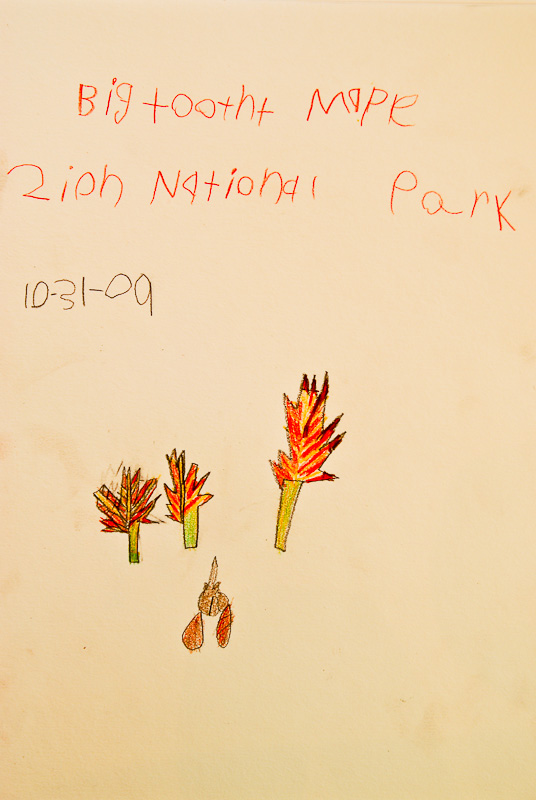 Bigtootht Maple
Zion National Park
10-31-09